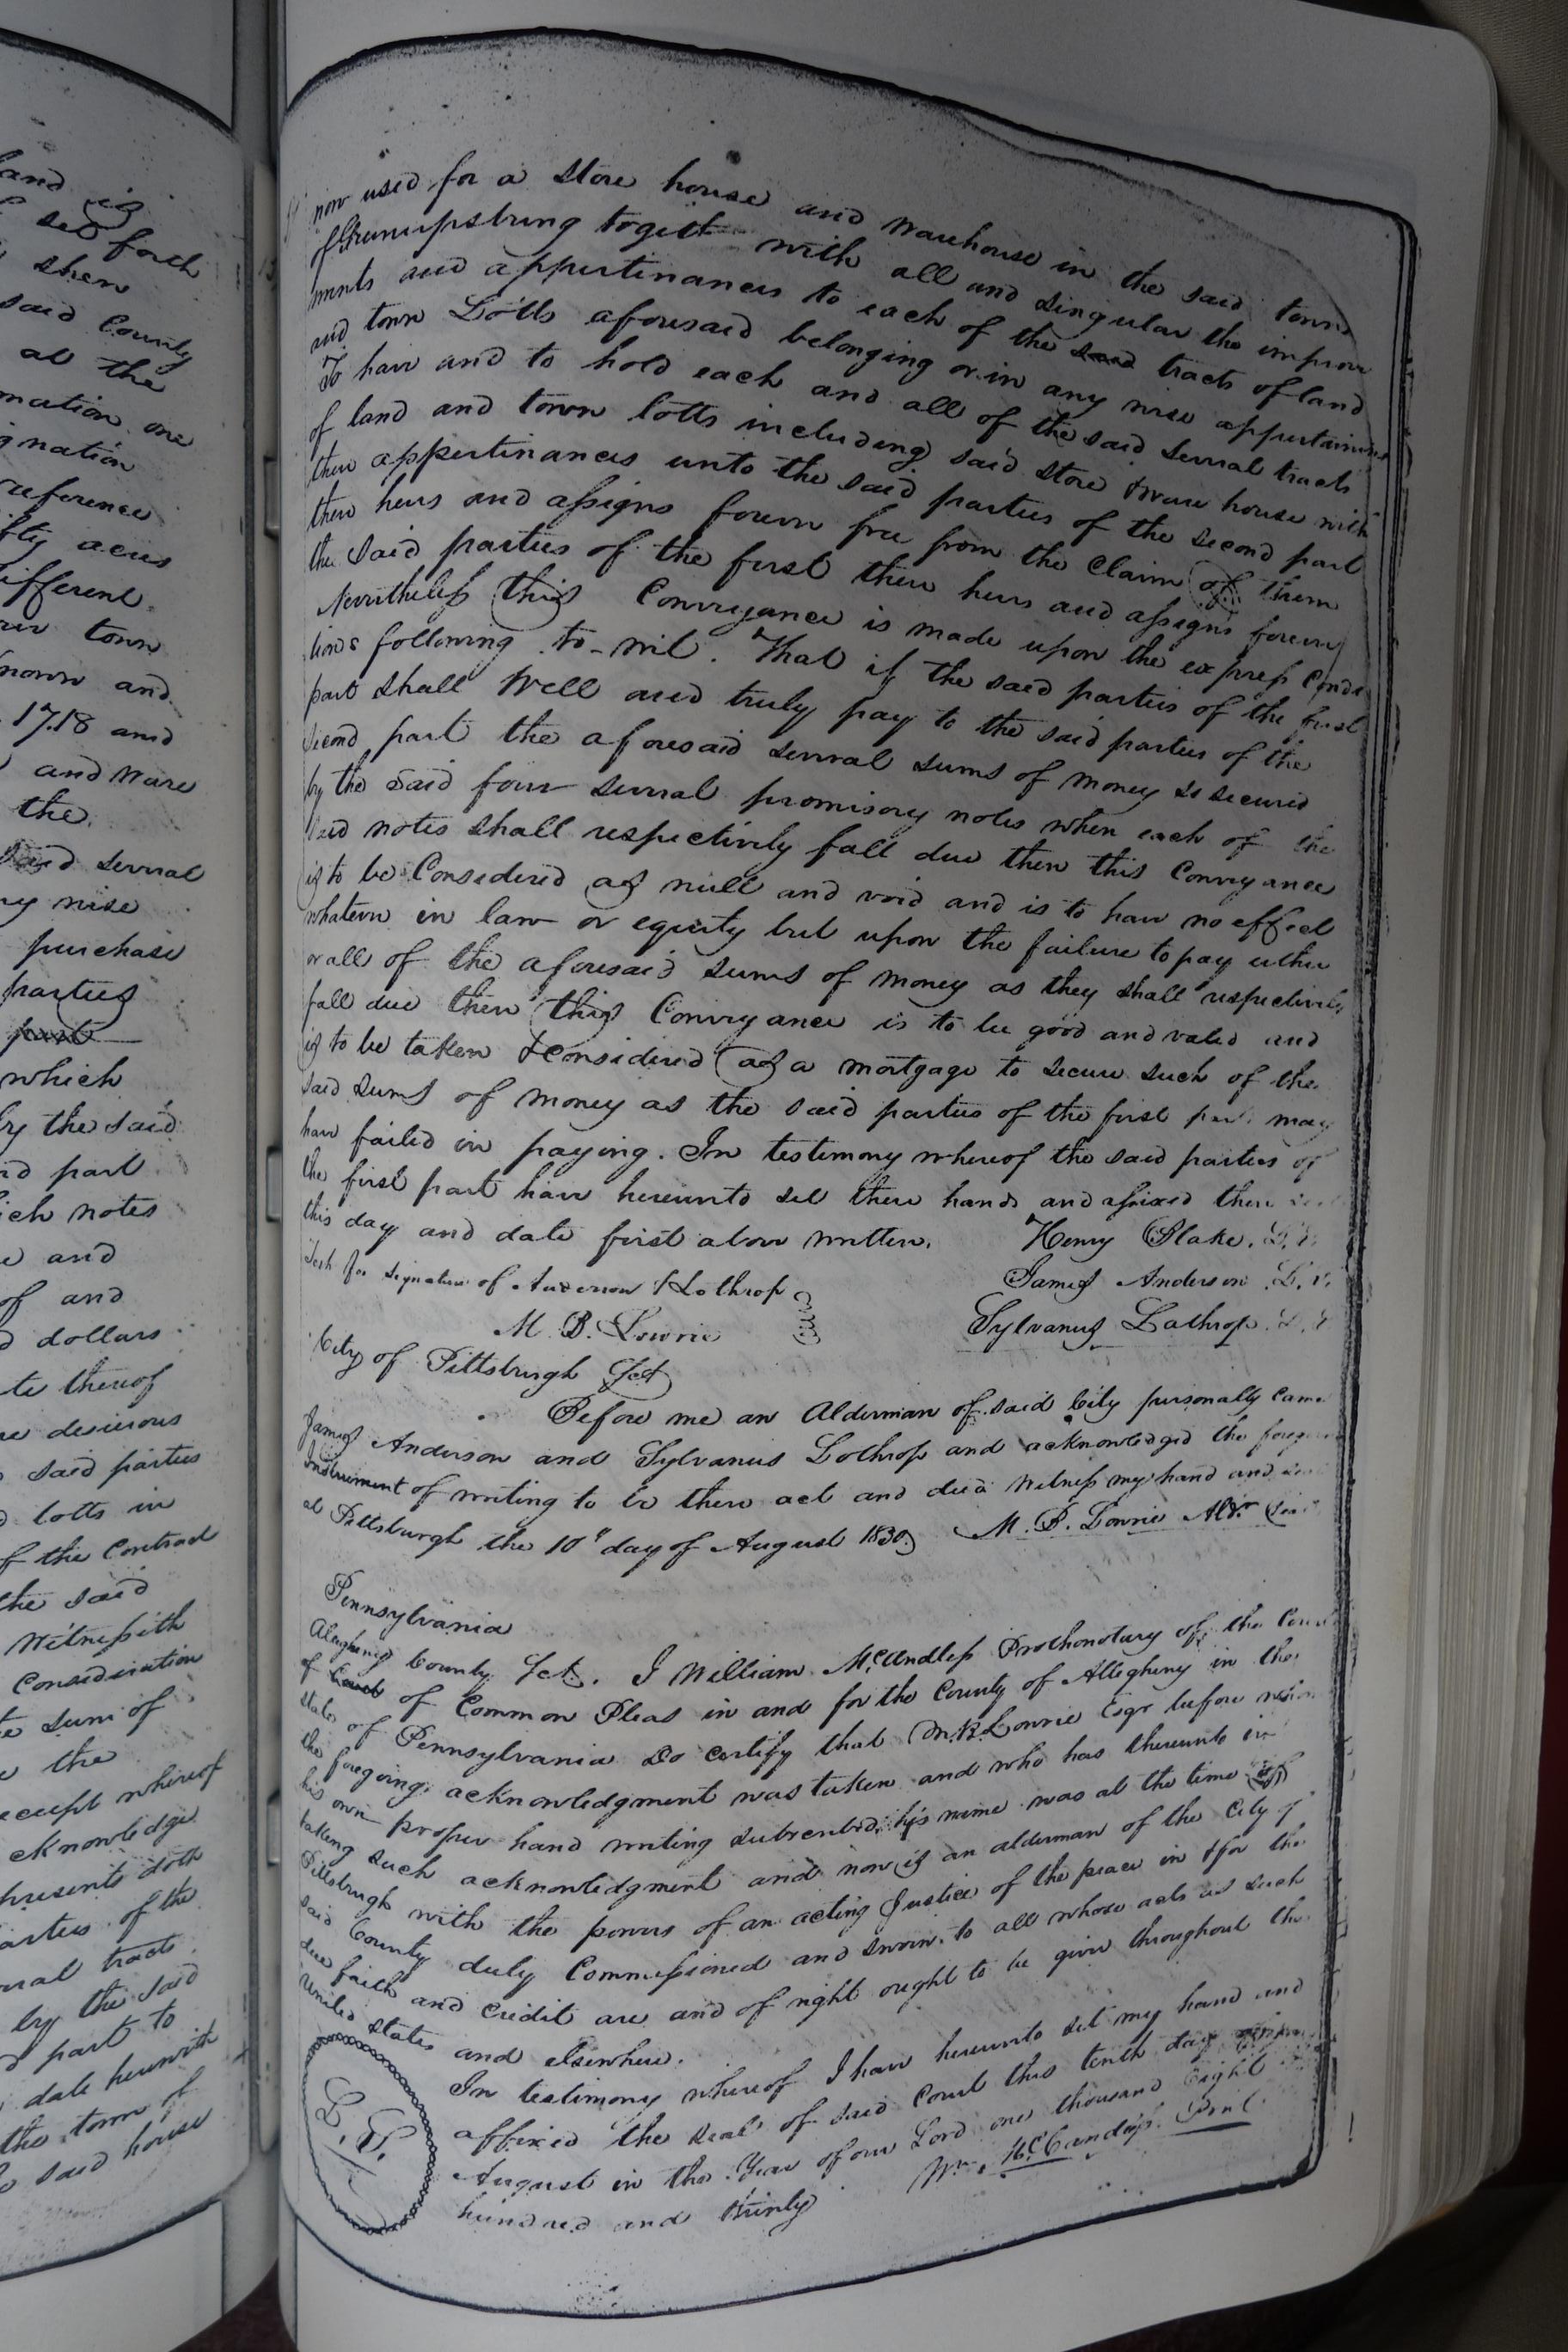 land is
set forth
shew
said County
at the
mation one
ignation
reference
fty acres
different
town
known and
1718 and
and Ware
the
said several
ny wise
purchase
parties
part
which
by the said
nd part
ich notes
e and
of and
d dollars
te thereof
re desirous
said parties
d lotts in
of the Contract
the said
Witnesseth
Consideration
te sum of
the
receipt whereof
cknowledge
presents doth
arties of the
veral tracts
by the said
d part to
date herewith
the town of
said house
now used for a store house and warehouse in the said town
together with all and singular the improve
ments and appertinances to each of the said tracts of land
and town Lotts aforesaid belonging or in any wise appertaining
To have and to hold each and all of the said several tracts
of land and town lotts including said store & ware house with
there appertinances unto the said parties of the second part
there heirs and assigns forever free from the Claim of them
the said parties of the first there heirs and assigns forever
Nevertheless this Conveyance is made upon the express Condi
tions following to-wit. That if the said parties of the first
part shall Well and truly pay to the said parties of the
second part the aforesaid several sums of money so secured
by the said four several promisory notes when each of the
said notes shall respectively fall due then this Conveyance
is to be Considered as null and void and is to have no effect
whatever in law or equity but upon the failure to pay either
or all of the aforesaid sums of money as they shall respectively
fall due then this Conveyance is to be good and valid and
is to be taken & considered as a mortgage to secure such of the
said sums of money as the said parties of the first part may
have failed in paying. In testimony whereof the said parties of
the first part have hereunto set there hands and affixed there
this day and date first above written. Henry Blake. L.S.
Test for signature of Anderson & Lothrop James Anderson L.S.
M. B. Lowrie Sylvanus Lothrop. L.S.
City of Pittsburgh Sct
Before me an Alderman of said City personally came
James Anderson and Sylvanus Lothrop and acknowledged the foregoing
Instrument of writing to be there act and deed Witness my hand and seal
at Pittsburgh the 10th day of August 1830 M. B. Lowrie Aldr Seal
Pennsylvania
Alegheny County Sct. I William McCandless Prothonotary of the Court
of Court of Common Pleas in and for the County of Allegheny in the
state of Pennsylvania Do certify that M.B. Lowrie Esqr before whom
the foregoing acknowledgment was taken and who has thereunto in
his own proper hand writing subscribed his name was at the time of
taking such acknowledgment and now is an alderman of the City of
Pittsbrugh with the powers of an acting Justice of the peace in & for the
said County duly Commissioned and sworn to all whose acts as such
due faith and credit are and of right ought to be given throughout the
United States and elsewhere.
In testimony whereof I have hereunto set my hand and
affixed the seal of said Court this tenth day
August in the Year of our Lord one thousand Eight
hundred and thirty Wm. McCandless
L.S.